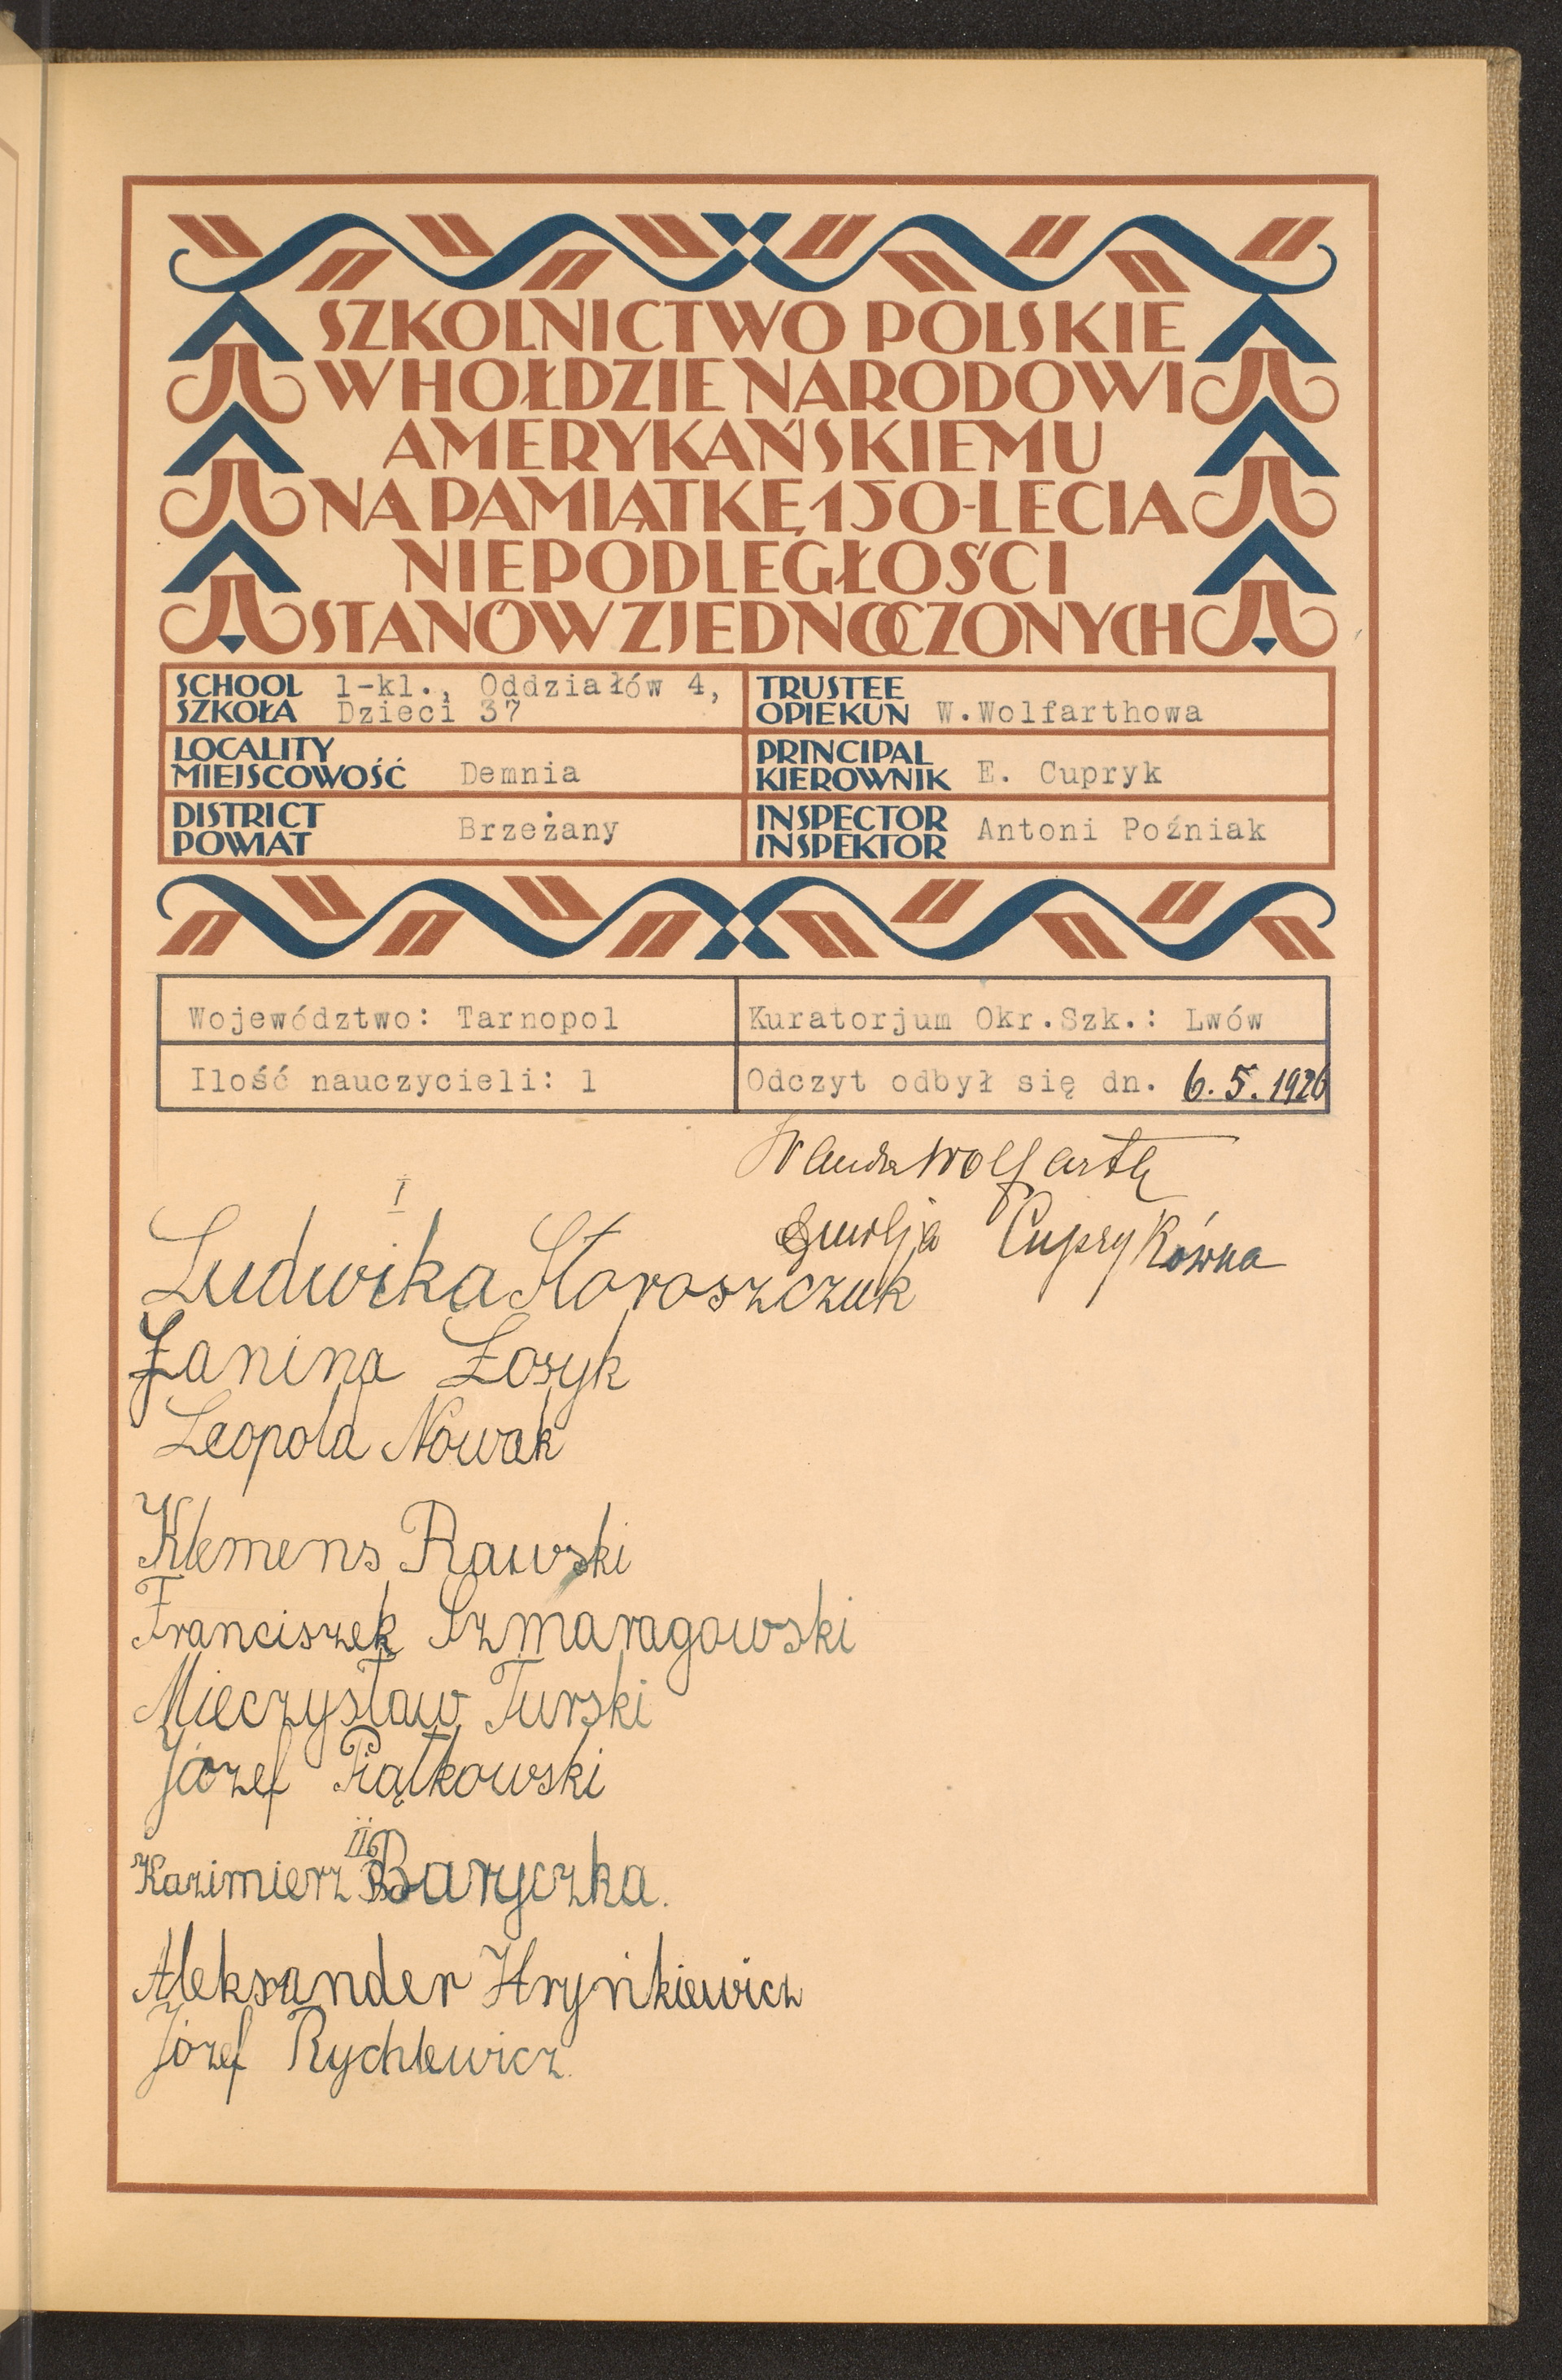 SZKOLNICTWO POLSKIE
W HOŁDZIE NARODOWI
AMERYKAŃSKIEMU
NA PAMIĄTKĘ 150-LECIA
NIEPODLEGŁOŚCI
STANÓW ZJEDNOCZONYCH
SCHOOL SZKOŁA 1-kl., Oddziałów 4, Dzieci 37
TRUSTEE OPIEKUN W.Wolfarthowa
LOCALITY MIEJSCOWOŚĆ Demnia
PRINCIPAL KIEROWNIK E. Cupryk
DISTRICT POWIAT Brzeżany
INSPECTOR INSPEKTOR Antoni Poźniak
Województwo: Tarnopol
Kuratorjum Okr.Szk.: Lwów
Ilość nauczycieli: 1
Odczyt odbył się dn. 6. 5. 1926
Wanda Wolfarth
Emilja Cuprykówna
I
Ludwika Storoszczuk
Janina Łosyk
Leopold Nowak
Klemens Rawski
Franciszek Szmaragowski
Mieczysław Turski
Józef Piątkowski
IIb
Kazimierz Baryczka.
Aleksander Hryńkiewicz
Józef Rychlewicz.